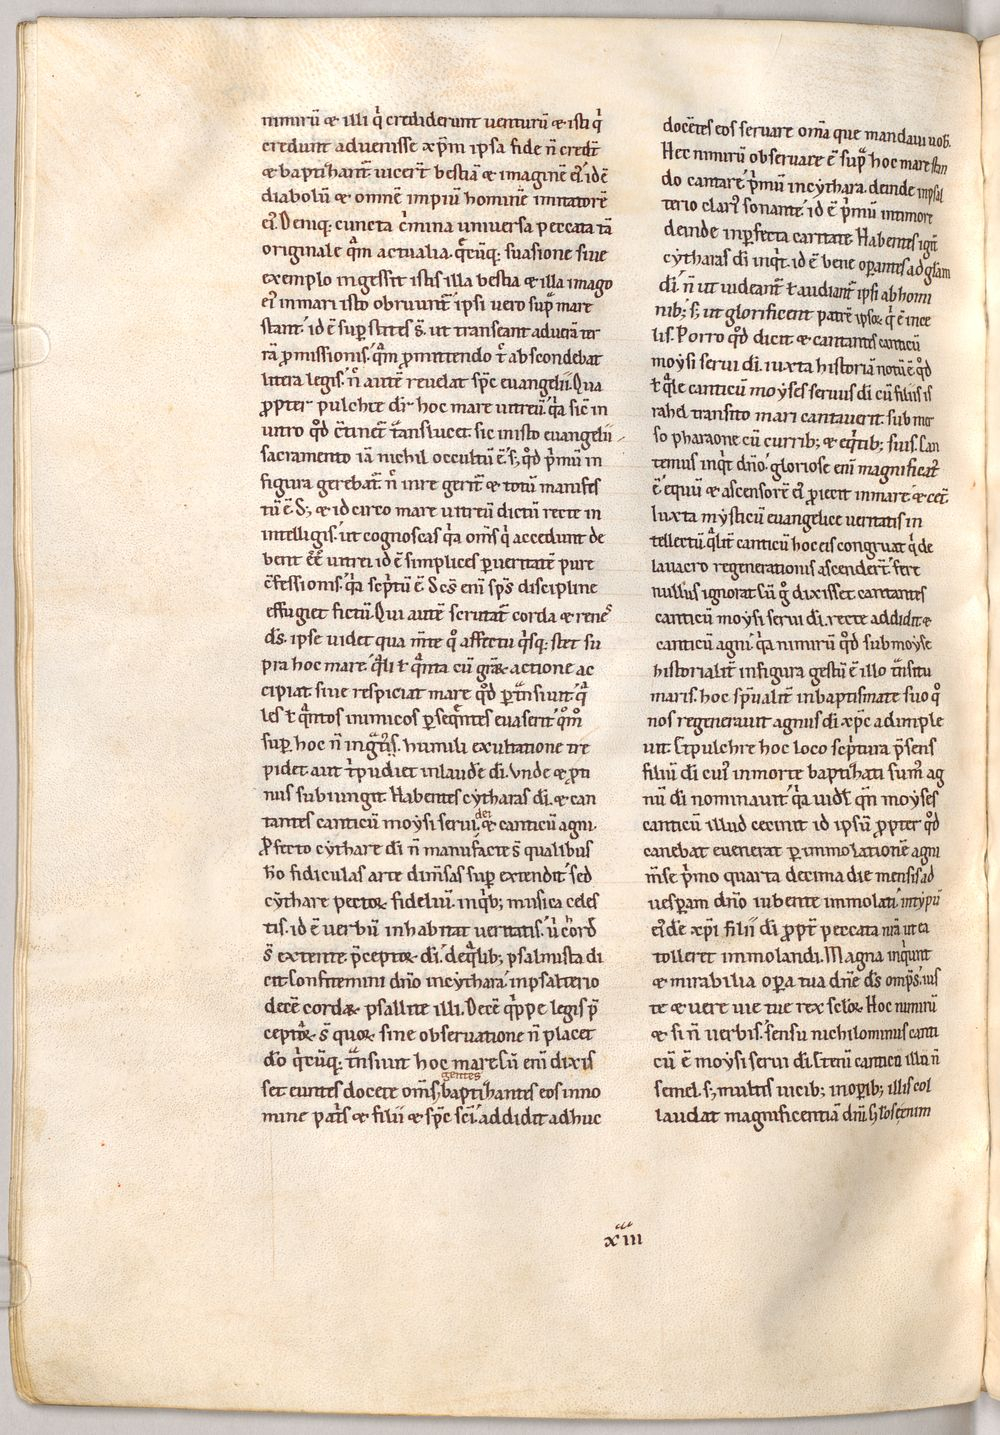 nimirū & illi q̇ crediderunt venturū & isti q̇
credunt advenisse xp̄m ipsa fide n̄ credt̄
& baptizant̄ vicert̄ bestiā & imaginē ei᾽. id ē
diabolū & omnē impiū hominē imitatorē
ei᾽. Deniq; cuncta c̓mina universa peccata tā
originale q̄m actualia. q̄cūq; suasione sive
exemplo ingessit istis illa bestia & illa imago
ei᾽ in mari isto obruunt̄ ipsi vero sup̄ mare
stant. id ē sup̄stites s̄. ut transeant ad verā ter
rā p̱missionis. q̄m p̱mittendo t̄ abscondebat
litera legis. n̄c autē revelat sp̄c evangelii. Qua
p̱pter pulchre dr̄ hoc mare vitreū. q̄a sic̄ in
vitro q̊d c̄tinet̄ t̄anslucet. sic in isto evangelii
sacramento iā nichil occultū ē. s; q̊d p̓mū in
figura gerebat̄. n̄c in re gerit̄ & totū manifes
tū ē. S; & idcirco mare vitreū dictū recte in
intelligis. ut cognoscas q̄a om̄s q̓ accedunt de
bent ēē vitrei. id ē simplices p̱ veritatē pure
c̄fessionis. q̄a sc̓ptū ē. S̄c̄s̄ enī sp̄s discipline
effugiet fictū. Qui autē scrutat̄ corda & renes
d̄s. ipse videt qua m̄te q̊ affectu q̓sq; stet su
pra hoc mare. q̄li t̵ q̄nta cū gr̄a& actione ac
cipiat sive respiciat mare q̊d p̱t̄nsivit. q̄
les t̵ q̄ntos inimicos p̱seq̄ntes evaserit. q̊m̊
sup̱ hoc n̄ ing̓t̓s. humili exultatione tre
pidet. aut t̓pudiet in laude di̅. Unde & p̱ti
nus subiungit. Habentes cytharas di̅. & can
tantes canticū moysi servi dei & canticū agni.
P̱fecto cythare di̅ n̄ manufacte s̄ qualibus
h̄o fidiculas arte dim̄sas sup̱ extendit. sed
cythare pectoꝝ fideliū. in q̓b; musica celes
tis. id ē verbū inhabitat veritatis. ù cord̓
s̄ extente p̄ceptoꝝ di̅. de q̓lib; psalmista di
cit. Confitemini dn̄o in cythara. in psalterio
decē cordaꝝ psallite illi. Decē q̓ppe legis p̄
ceptoꝝ s̄ quoꝝ sine observatione n̄ placet
d̄o q̓cūq; t̄nsiunt hoc mare. Cū enī dixis
set euntes docete om̄s gentes baptizantes eos in no
mine pat̓s & filii & sp̄c sc̄i. addidit adhuc
docētes eos servare om̄a que mandavi vob̄.
Hec nimirū observare ē sup̄ hoc mare stan
do cantare p̓mū in cythara. deinde in psal
terio clari᾽ sonante. id ē p̓mū in timore
deinde in p̱fecta caritate. Habentes igit̄
cytharas di̅ inq̓t. id ē bene op̱antes ad gl̄am
di̅. n̄ ut videant̄ t̵ audiant̄ ipsi ab homi
nib; s; ut glorificent patrē ipsoꝝ q̓ ē in ce
lis. Porro q̊d dicit & cantantes canticū
moysi servi di̅. iuxta historiā notū ē. q̊d
t̵ q̄le canticū moyses servus di̅ cū filiis is
rahel transito mari cantaverit. submer
so pharaone cū currib; & eq̓tib; suis. Can
temus inq̓t dn̄o. gloriose enī magnificat᾽
ē. equū & ascensorē ei᾽ p̱iecit in mare. & cet̄.
Iuxta mysticū evangelice veritatis in
tellectū. q̄lit̄ canticū hoc eis congruat q̓ de
lavacro regenerationis ascendert̄. fere
nullus ignorat. Cū g̊ dixisset cantantes
canticū moysi servi di̅. recte addidit &
canticū agni. q̄a nimirū q̊d sub moyse
historialit̄ in figura gestū ē illo t̄nsitu
maris. hoc sp̄ualit̄ in baptismate suo q̊
nos regeneravit agnus di̅ xp̄c adimple
vit. Et pulchre hoc loco sc̓ptura p̄sens
filiū di̅ cui᾽ in morte baptizati sum᾽ ag
nū di̅ nominavit. q̄a vidȝ q̄n moyses
canticū illud cecinit id ipsū p̱pter q̊d
canebat evenerat p̱ immolationē agni
m̄se p̓mo quarta decima die mensis ad
vesp̱am dn̄o iubente immolati. in typū
ei᾽dē xp̄i filii di̅ p̱pt̄ peccata n̄ra ut ea
tolleret immolandi. Magna inq̓unt
& mirabilia op̱a tua dn̄e d̄s omp̄s. ius
te & vere vie tue rex sc̄loꝝ. Hoc nimirū
& si n̄ verbis. sensu nichilominus canti
cū ē moysi servi di̅. Etenī canticū illū n̄
semel. s; multis vicib; in op̱ib; illis col
laudat magnificentiā dn̄i.
xiii